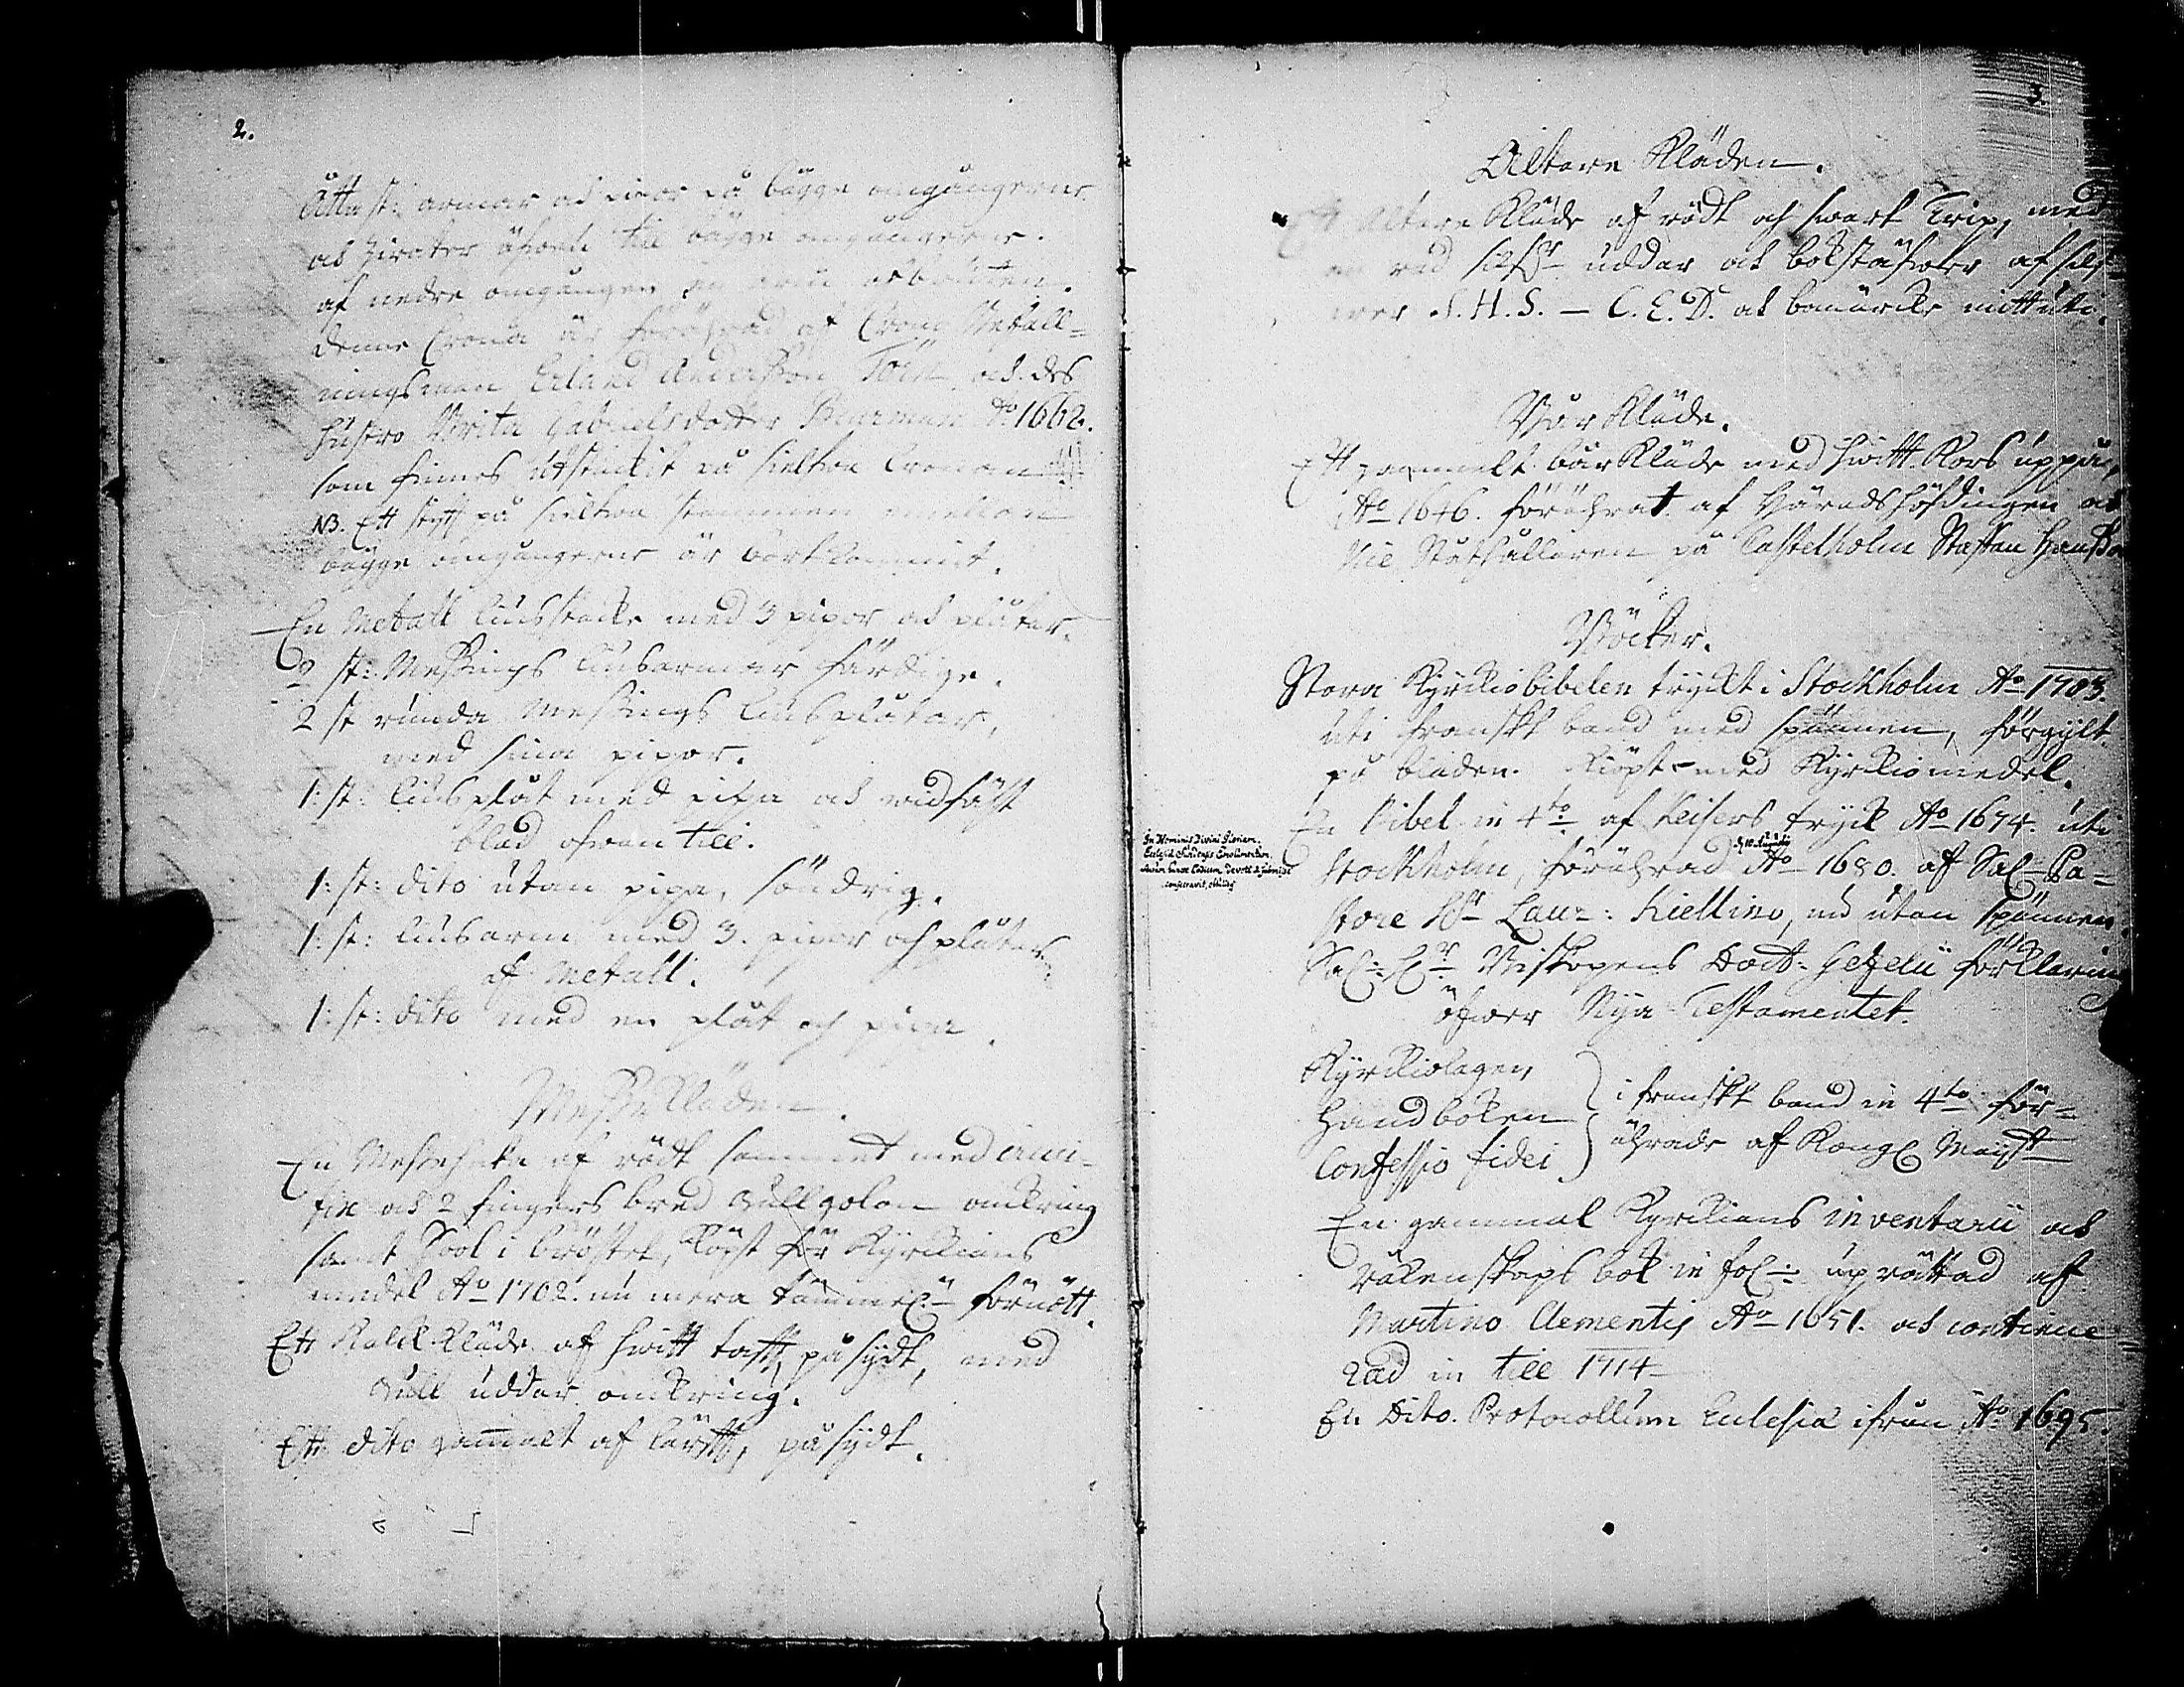 2.
Åtta st: armar och pipor på bägge omgångerne
och Zirater öfwen till bägge omgångerne.
af nedre omgången en arm afbruten.
denne Crona är förährad af Befall-
ningsman Erland Andersson Törn och des
hustro Brita Gabrielsdotter Burman Ao 1662.
som finnes Utstuckit på sielfwa Cronan
NB. Ett stÿft på sielfwa stammen emellan
bägge omgångerne är bortkommit.
En Metall liusstake med 3 pipor och plåtar.
2 st: Messings liusarmar färdige.
2 st runda Messings liusplåtar,
med sina pipor.
1: st: liusplåt med pipa och widfäst
blad ofwan till.
1: st: dito utan pipa, söndrig.
1: st: liusarm med 3. pipor och plåtar
af Metall.
1: st: dito med en plåt och pipa.
Messekläden.
En Messehaka af rödt sammet med cruci-
fix och 2 fingers bred Gullgalon omkring
samt Sool i bröstet, köpt för Kÿrkians
medel Ao 1702. nu mera tämmel: förnött.
Ett Kalk kläde af hwitt taft, påsÿdt, med
Gull uddar omkring.
Ett dito gammalt af lärft, påsÿdt.
3.
Altare Kläden.
Ett Altare Kläde af rödt och swart Trip, med
en rad uddar och bokstäfwer af silf-
wer I. H. S. — C. E. D. och bomärcke mitt uti.
Bår Kläde.
Ett gammalt bår Kläde med hwitt Kors uppå,
Ao 1646. förährat af Häradshöfdingen och
Vice Ståthållaren på Castelholm Staffan Hansson
Böcker.
Stora Kÿrkiobibelen trÿckt i Stockholm Ao 1703.
uti franskt band med spännen, förgÿlt
på bladen. Kiöpt med Kÿrkiomedel.
En Bibel in 4to af Keisers trÿck Ao 1674. uti
d 10 Augusti
Stockholm, förährad Ao 1680. af Sal. Pa-
store Hr Laur: Kiellino, nu utan spännen.
In Nominis Divini Gloriam,
Ecclesiæ Emolumentum,
hunc Codicem devote
consecravit,
Sal: Hr Biskopens Doct: Gezelii förklaring
öfwer Nÿa Testamentet.
Kÿrkiolagen,
Handboken
Confessio fidei
i franskt band in 4to för-
ährade af Kongl Maÿst
En gammal Kyrkians inventarii och
räkenskaps bok in fol: uprättad af
Martino Clementis Ao 1651. och continue-
rad in till 1714
En Dito. Protocollum Eclesiæ ifrån Ao 1695.